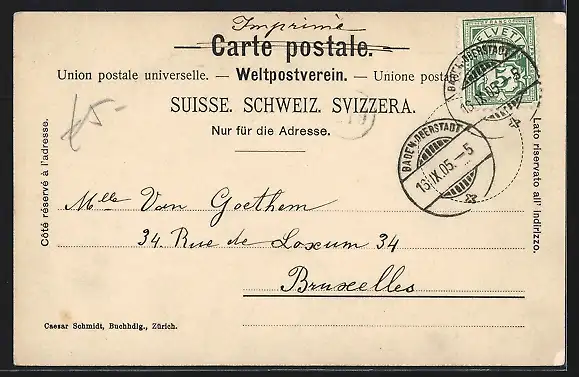 Imprimé
Carte postale.
Union postale universelle. — Weltpostverein. — Unione posta
SUISSE. SCHWEIZ. SVIZZERA.
Nur für die Adresse.
HELVETIA
FRANCO
5
BADEN-OBERSTADT
13.IX.05.-5
BADEN-OBERSTADT
13.IX.05.-5
45-
Côté réservé à l'adresse.
Lato riservato all' indirizzo.
Mlle Van Goethem
34. Rue de Loxum 34
Bruxelles
Caesar Schmidt, Buchhdlg., Zürich.